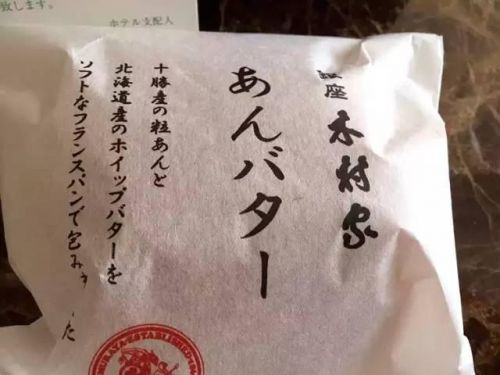 致します。
ホテル支配人
銀座 木村家
あんバター
十勝産の粒あんと
北海道産のホイップバターを
ソフトなフランスパンで包みま た
MURAYA ESTABLISHED